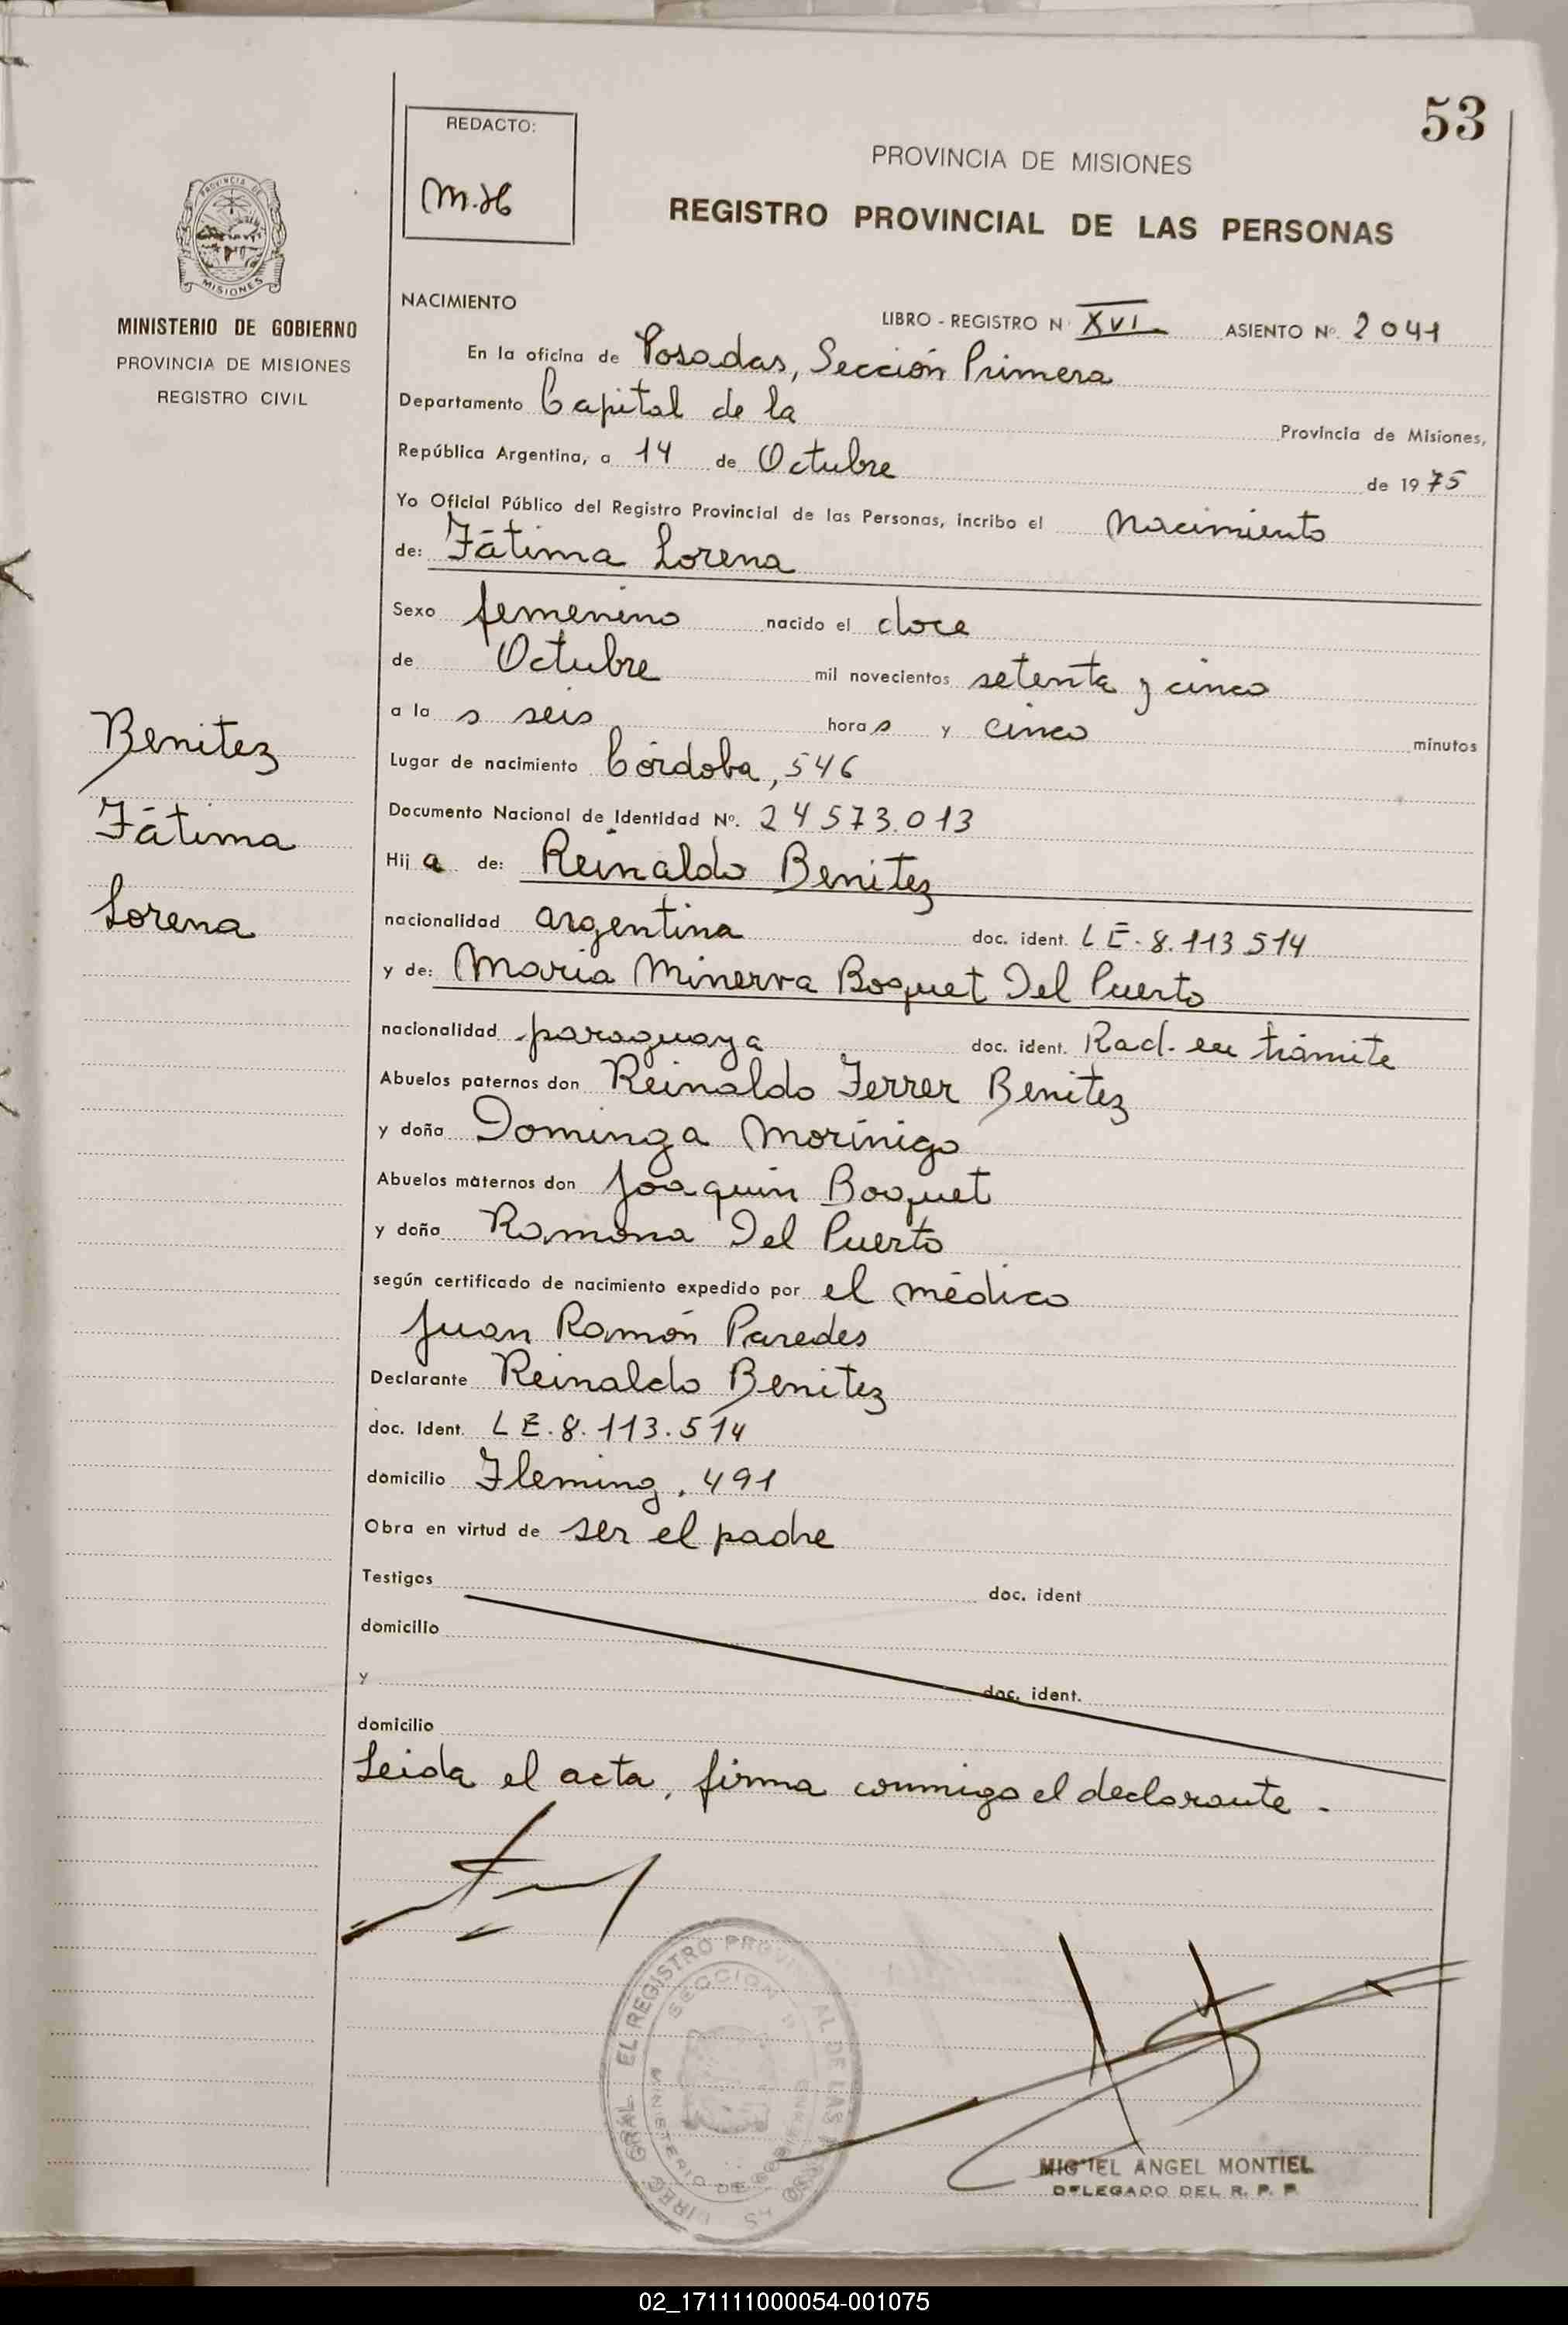 53
REDACTO:
M.H
PROVINCIA DE MISIONES
REGISTRO PROVINCIAL DE LAS PERSONAS
PROVINCIA DE
MISIONES
MINISTERIO DE GOBIERNO
PROVINCIA DE MISIONES
REGISTRO CIVIL
NACIMIENTO
LIBRO - REGISTRO N XVI ASIENTO Nº. 2041
En la oficina de Posadas, Sección Primera
Departamento Capital de la Provincia de Misiones,
República Argentina, a 14 de Octubre de 1975
Yo Oficial Público del Registro Provincial de las Personas, incribo el Nacimiento
de: Fátima Lorena
Sexo femenino nacido el doce
de Octubre mil novecientos setenta y cinco
a la s seis hora s y cinco minutos
Lugar de nacimiento Córdoba, 546
Documento Nacional de Identidad Nº. 24573.013
Hij a de: Reinaldo Benitez
nacionalidad argentina doc. ident. LE. 8.113.514
y de: Maria Minerva Boquet Del Puerto
nacionalidad paraguaya doc. ident. Rad. en trámite
Abuelos paternos don Reinaldo Ferrer Benitez
y doña Dominga Morínigo
Abuelos maternos don Joaquin Boquet
y doña Ramona Del Puerto
según certificado de nacimiento expedido por el médico
Juan Ramón Paredes
Declarante Reinaldo Benitez
doc. Ident. LE. 8.113.514
domicilio Fleming, 491
Obra en virtud de ser el padre
Testigos doc. ident
domicilio
y doc. ident.
domicilio
Leida el acta, firma conmigo el declarante.
Benitez
Fátima
Lorena
EL REGISTRO
SECCION
MINISTERIO DE
MIGUEL ANGEL MONTIEL
DELEGADO DEL R. P. P.
02_171111000054-001075